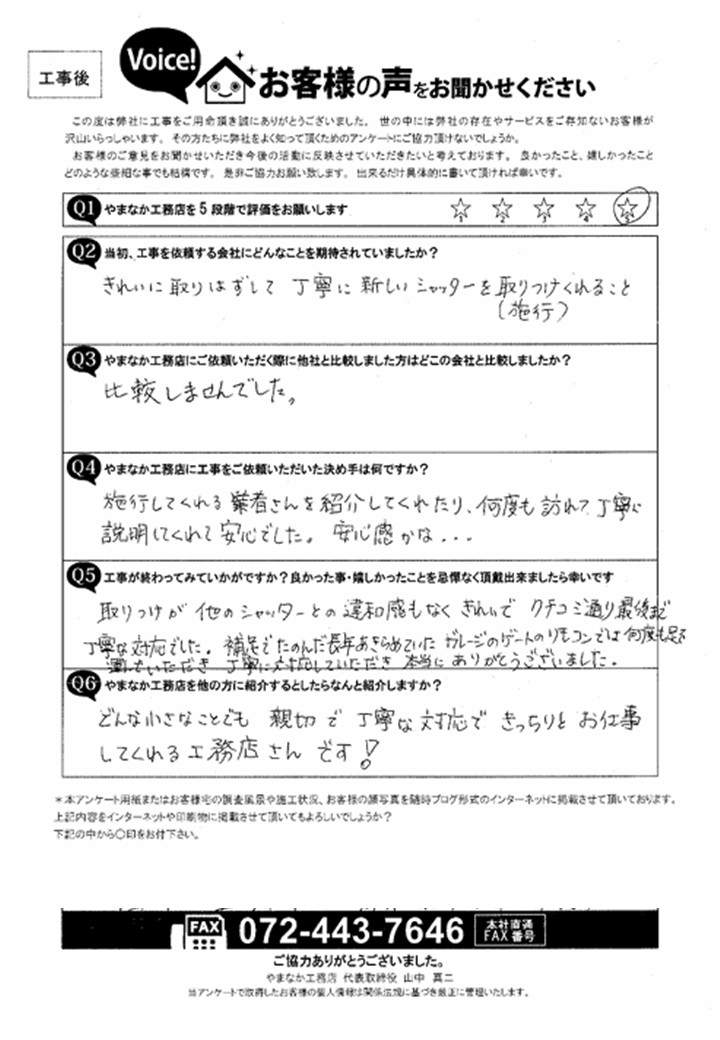 工事後
Voice!
お客様の声をお聞かせください
この度は弊社に工事をご用命頂き誠にありがとうございました。 世の中には弊社の存在やサービスをご存知ないお客様が
沢山いらっしゃいます。 その方たちに弊社をよく知って頂くためのアンケートにご協力頂けないでしょうか。
お客様のご意見をお聞かせいただき今後の活動に反映させていただきたいと考えております。 良かったこと、嬉しかったこと
どのような些細な事でも結構です。 是非ご協力お願い致します。 出来るだけ具体的に書いて頂ければ幸いです。
Q1 やまなか工務店を5段階で評価をお願いします
1 2 3 4 5
Q2 当初、工事を依頼する会社にどんなことを期待されていましたか?
きれいに取りはずして 丁寧に新しいシャッターを取りつけくれること
(施行)
Q3 やまなか工務店にご依頼いただく際に他社と比較しました方はどこの会社と比較しましたか?
比較しませんでした。
Q4 やまなか工務店に工事をご依頼いただいた決め手は何ですか?
施行してくれる業者さんを紹介してくれたり、何度も訪れて丁寧に
説明してくれて安心でした。 安心感かな...
Q5 工事が終わってみていかがですか?良かった事・嬉しかったことを忌憚なく頂戴出来ましたら幸いです
取りつけが他のシャッターとの違和感もなくきれいで クチコミ通り最後まで
丁寧な対応でした。補足でたのんだ長年あきらめていた ガレージのゲートのリモコンでは何度も足を
運んでいただき 丁寧に対応していただき 本当にありがとうございました。
Q6 やまなか工務店を他の方に紹介するとしたらなんと紹介しますか?
どんな小さなことでも 親切で丁寧な対応で きっちりと お仕事
してくれる工務店さん です!
*本アンケート用紙またはお客様宅の調査風景や施工状況、お客様の顔写真を随時ブログ形式のインターネットに掲載させて頂いております。
上記内容をインターネットや印刷物に掲載させて頂いてもよろしいでしょうか?
下記の中から〇印をお付下さい。
FAX 072-443-7646 本社直通 FAX番号
ご協力ありがとうございました。
やまなか工務店 代表取締役 山中 真二
当アンケートで取得したお客様の個人情報は関係法規に基づき厳正に管理いたします。